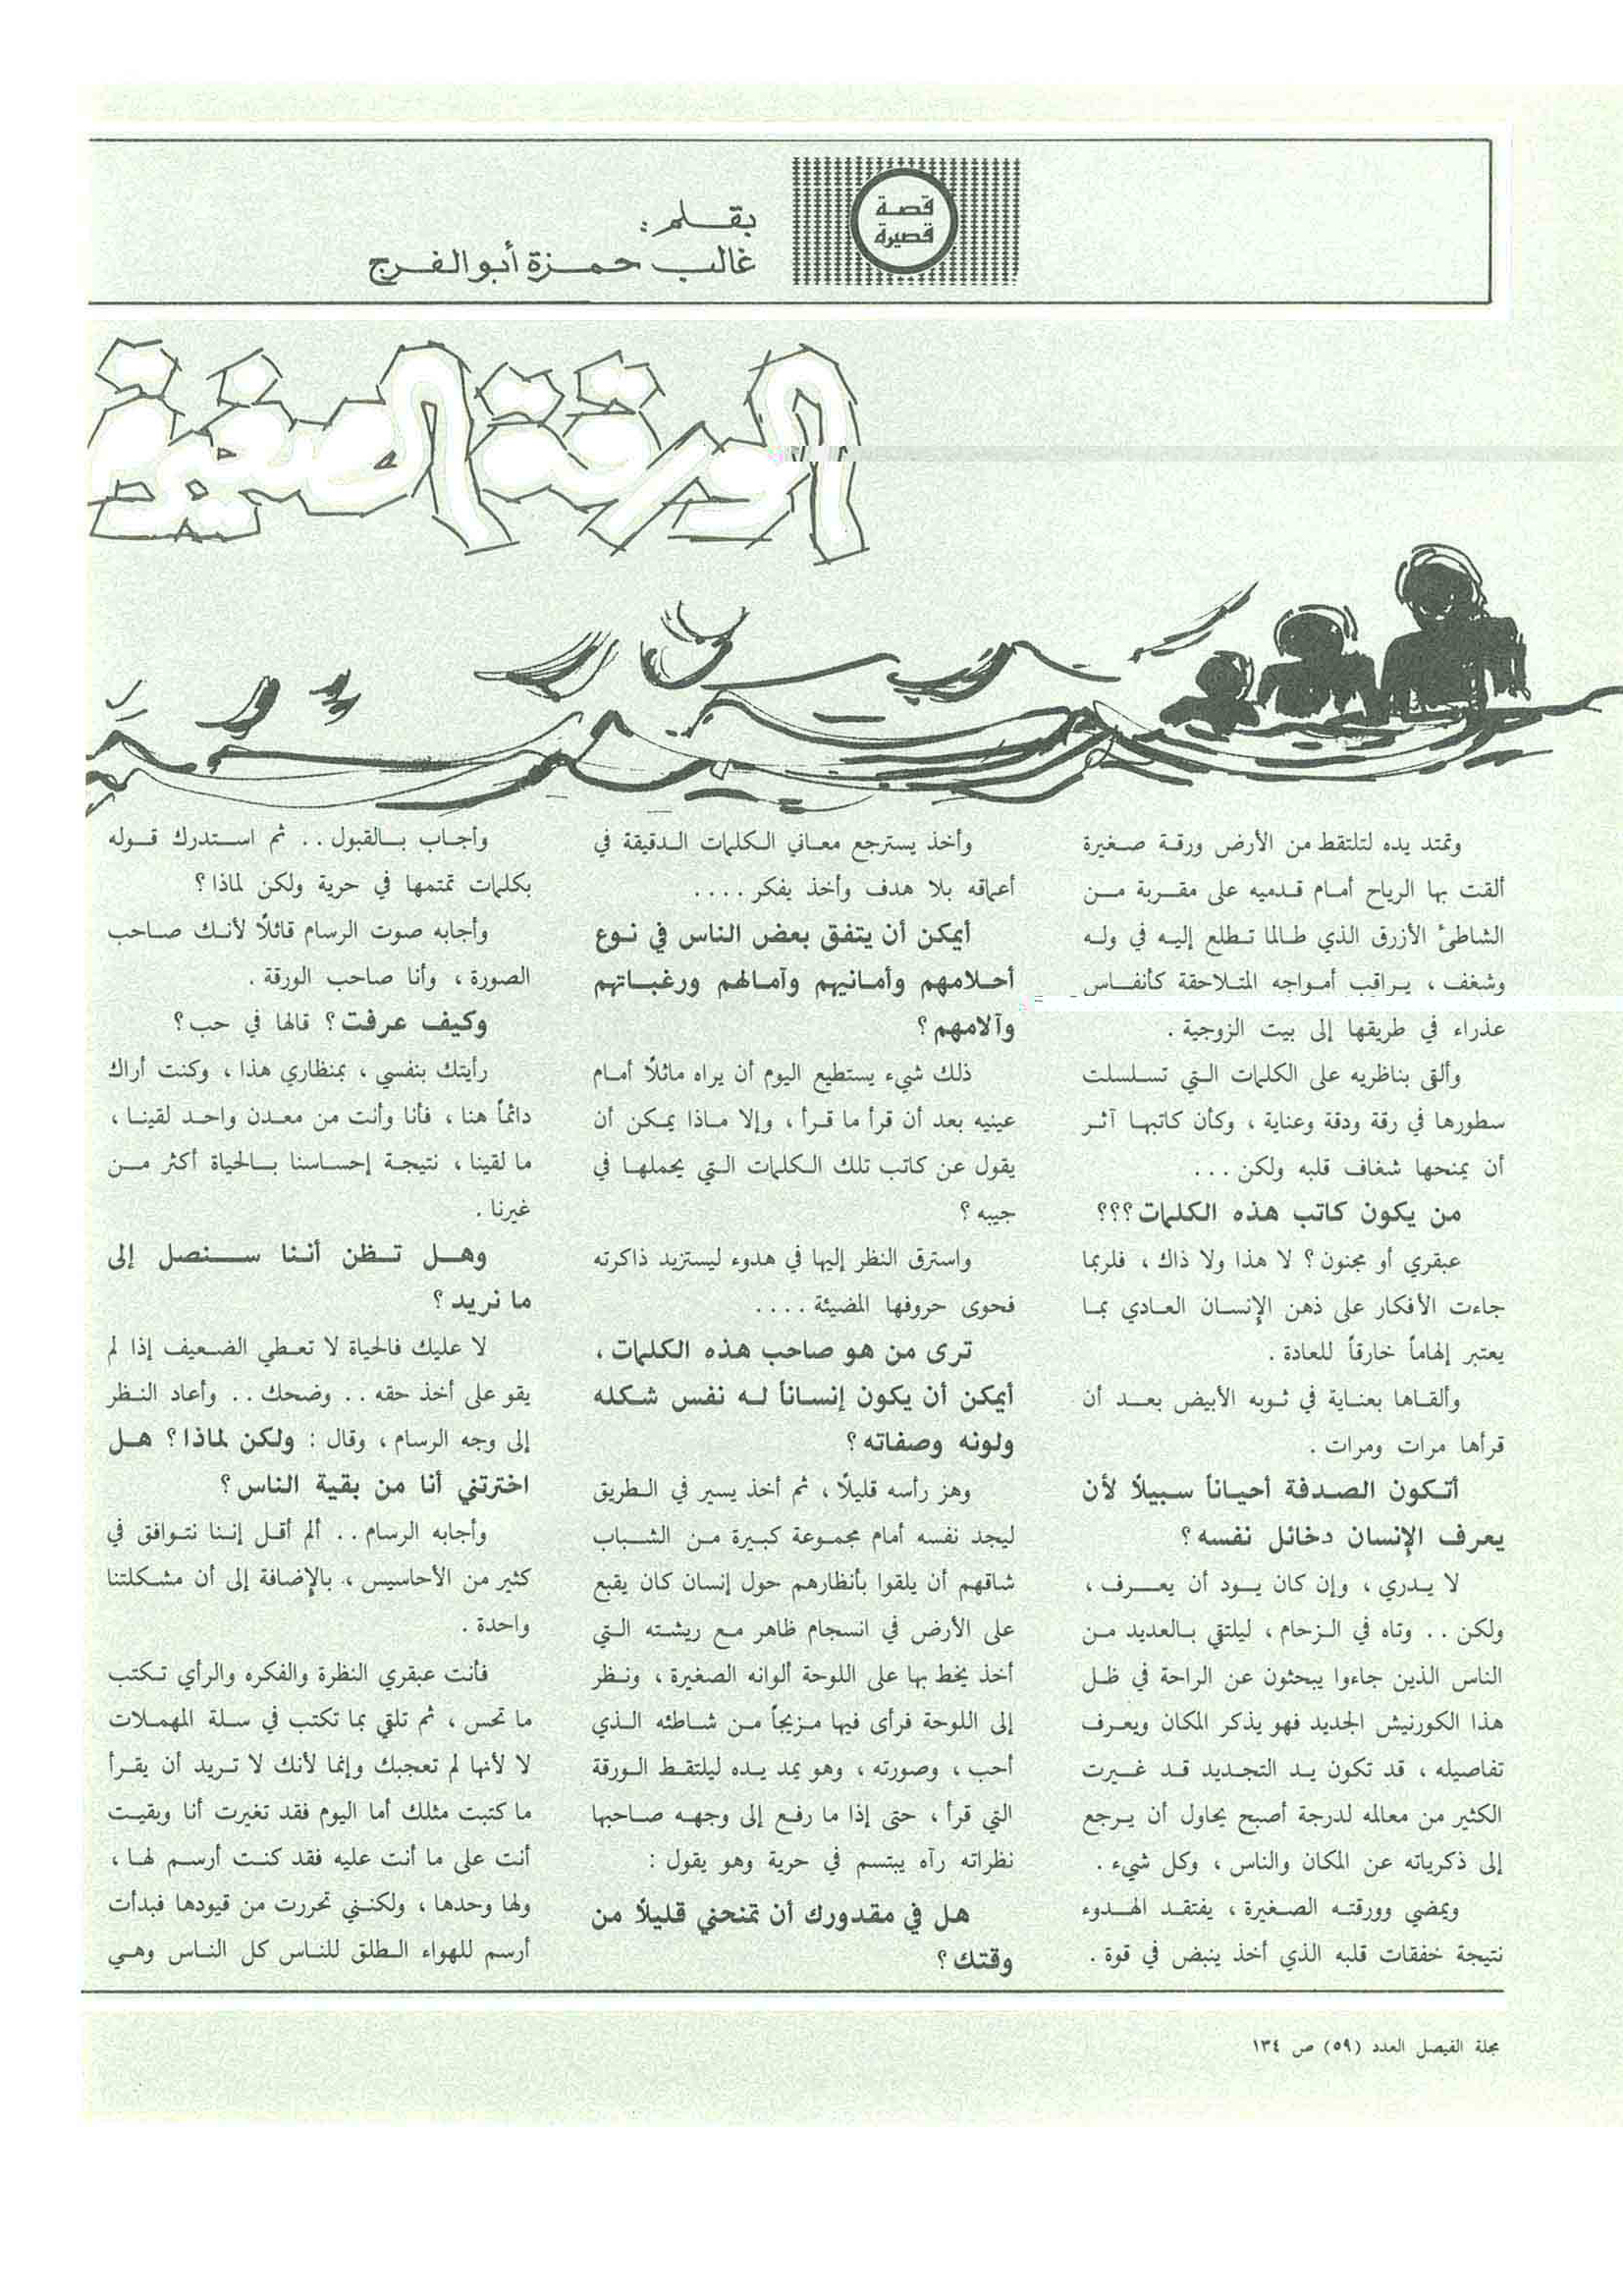 قصة
قصيرة
بقلم:
غالب حمزة أبو الفرج
الورقة الصغيرة
وتمتد يده لتلتقط من الأرض ورقة صغيرة
ألقت بها الرياح أمام قدميه على مقربة من
الشاطئ الأزرق الذي طالما تطلع إليه في وله
وشغف ، يراقب أمواجه المتلاحقة كأنفاس
عذراء في طريقها إلى بيت الزوجية .
وألقى بناظريه على الكلمات التي تسلسلت
سطورها في رقة ودقة وعناية ، وكأن كاتبها آثر
أن يمنحها شغاف قلبه ولكن ...
من يكون كاتب هذه الكلمات ؟؟؟
عبقري أو مجنون ؟ لا هذا ولا ذاك ، فلربما
جاءت الأفكار على ذهن الإنسان العادي بما
يعتبر إلهاماً خارقاً للعادة .
وألقاها بعناية في ثوبه الأبيض بعد أن
قرأها مرات ومرات .
أتكون الصدفة أحياناً سبيلًا لأن
يعرف الإنسان دخائل نفسه ؟
لا يدري ، وإن كان يود أن يعرف ،
ولكن .. وتاه في الزحام ، ليلتقي بالعديد من
الناس الذين جاءوا يبحثون عن الراحة في ظل
هذا الكورنيش الجديد فهو يذكر المكان ويعرف
تفاصيله ، قد تكون يد التجديد قد غيرت
الكثير من معالمه لدرجة أصبح يحاول أن يرجع
إلى ذكرياته عن المكان والناس ، وكل شيء .
ويمضي وورقته الصغيرة ، يفتقد الهدوء
نتيجة خفقات قلبه الذي أخذ ينبض في قوة .
وأخذ يسترجع معاني الكلمات الدقيقة في
أعماقه بلا هدف وأخذ يفكر ....
أيمكن أن يتفق بعض الناس في نوع
أحلامهم وأمانيهم وآمالهم ورغباتهم
وآلامهم ؟
ذلك شيء يستطيع اليوم أن يراه ماثلًا أمام
عينيه بعد أن قرأ ما قرأ ، وإلا ماذا يمكن أن
يقول عن كاتب تلك الكلمات التي يحملها في
جيبه ؟
واسترق النظر إليها في هدوء ليستزيد ذاكرته
فحوى حروفها المضيئة ....
ترى من هو صاحب هذه الكلمات ،
أيمكن أن يكون إنساناً له نفس شكله
ولونه وصفاته ؟
وهز رأسه قليلًا ، ثم أخذ يسير في الطريق
ليجد نفسه أمام مجموعة كبيرة من الشباب
شاقهم أن يلقوا بأنظارهم حول إنسان كان يقبع
على الأرض في انسجام ظاهر مع ريشته التي
أخذ يخط بها على اللوحة ألوانه الصغيرة ، ونظر
إلى اللوحة فرأى فيها مزيجاً من شاطئه الذي
أحب ، وصورته ، وهو يمد يده ليلتقط الورقة
التي قرأ ، حتى إذا ما رفع إلى وجهه صاحبها
نظراته رآه يبتسم في حرية وهو يقول :
هل في مقدورك أن تمنحني قليلًا من
وقتك ؟
وأجاب بالقبول .. ثم استدرك قوله
بكلمات تمتمها في حرية ولكن لماذا ؟
وأجابه صوت الرسام قائلًا لأنك صاحب
الصورة ، وأنا صاحب الورقة .
وكيف عرفت ؟ قالها في حب ؟
رأيتك بنفسي ، بمنظاري هذا ، وكنت أراك
دائماً هنا ، فأنا وأنت من معدن واحد لقينا ،
ما لقينا ، نتيجة إحساسنا بالحياة أكثر من
غيرنا .
وهل تظن أننا سنصل إلى
ما نريد ؟
لا عليك فالحياة لا تعطي الضعيف إذا لم
يقو على أخذ حقه .. وضحك .. وأعاد النظر
إلى وجه الرسام ، وقال : ولكن لماذا ؟ هل
اخترتني أنا من بقية الناس ؟
وأجابه الرسام .. ألم أقل إننا نتوافق في
كثير من الأحاسيس ، بالإضافة إلى أن مشكلتنا
واحدة .
فأنت عبقري النظرة والفكره والرأي تكتب
ما تحس ، ثم تلقي بما تكتب في سلة المهملات
لا لأنها لم تعجبك وإنما لأنك لا تريد أن يقرأ
ما كتبت مثلك أما اليوم فقد تغيرت أنا وبقيت
أنت على ما أنت عليه فقد كنت أرسم لها ،
ولها وحدها ، ولكنني تحررت من قيودها فبدأت
أرسم للهواء الطلق للناس كل الناس وهي
مجلة الفيصل العدد (٥٩) ص ١٣٤